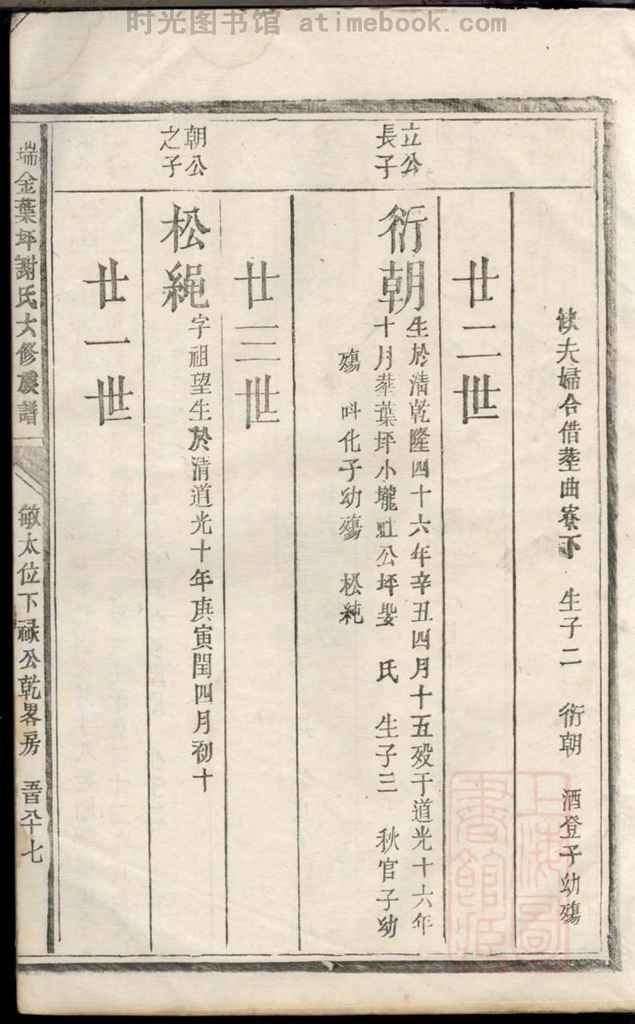 时光图书馆 atimebook.com
夫婦合借塟曲寮下 生子二 衍朝 酒登子幼殤
廿二世
立公
長子
衍朝
生於清乾隆四十六年辛丑四月十五殁于道光十六年
十月塟葉坪小壠 公坪娶 氏 生子三 秋官子幼
殤 呌化子幼殤 松純
廿三世
朝公
之子
松繩
字祖望生於清道光十年庚寅閏四月初十
廿一世
瑞金葉坪謝氏大修族譜
敏太位下祿公乾畧房 七
上海圖書館藏